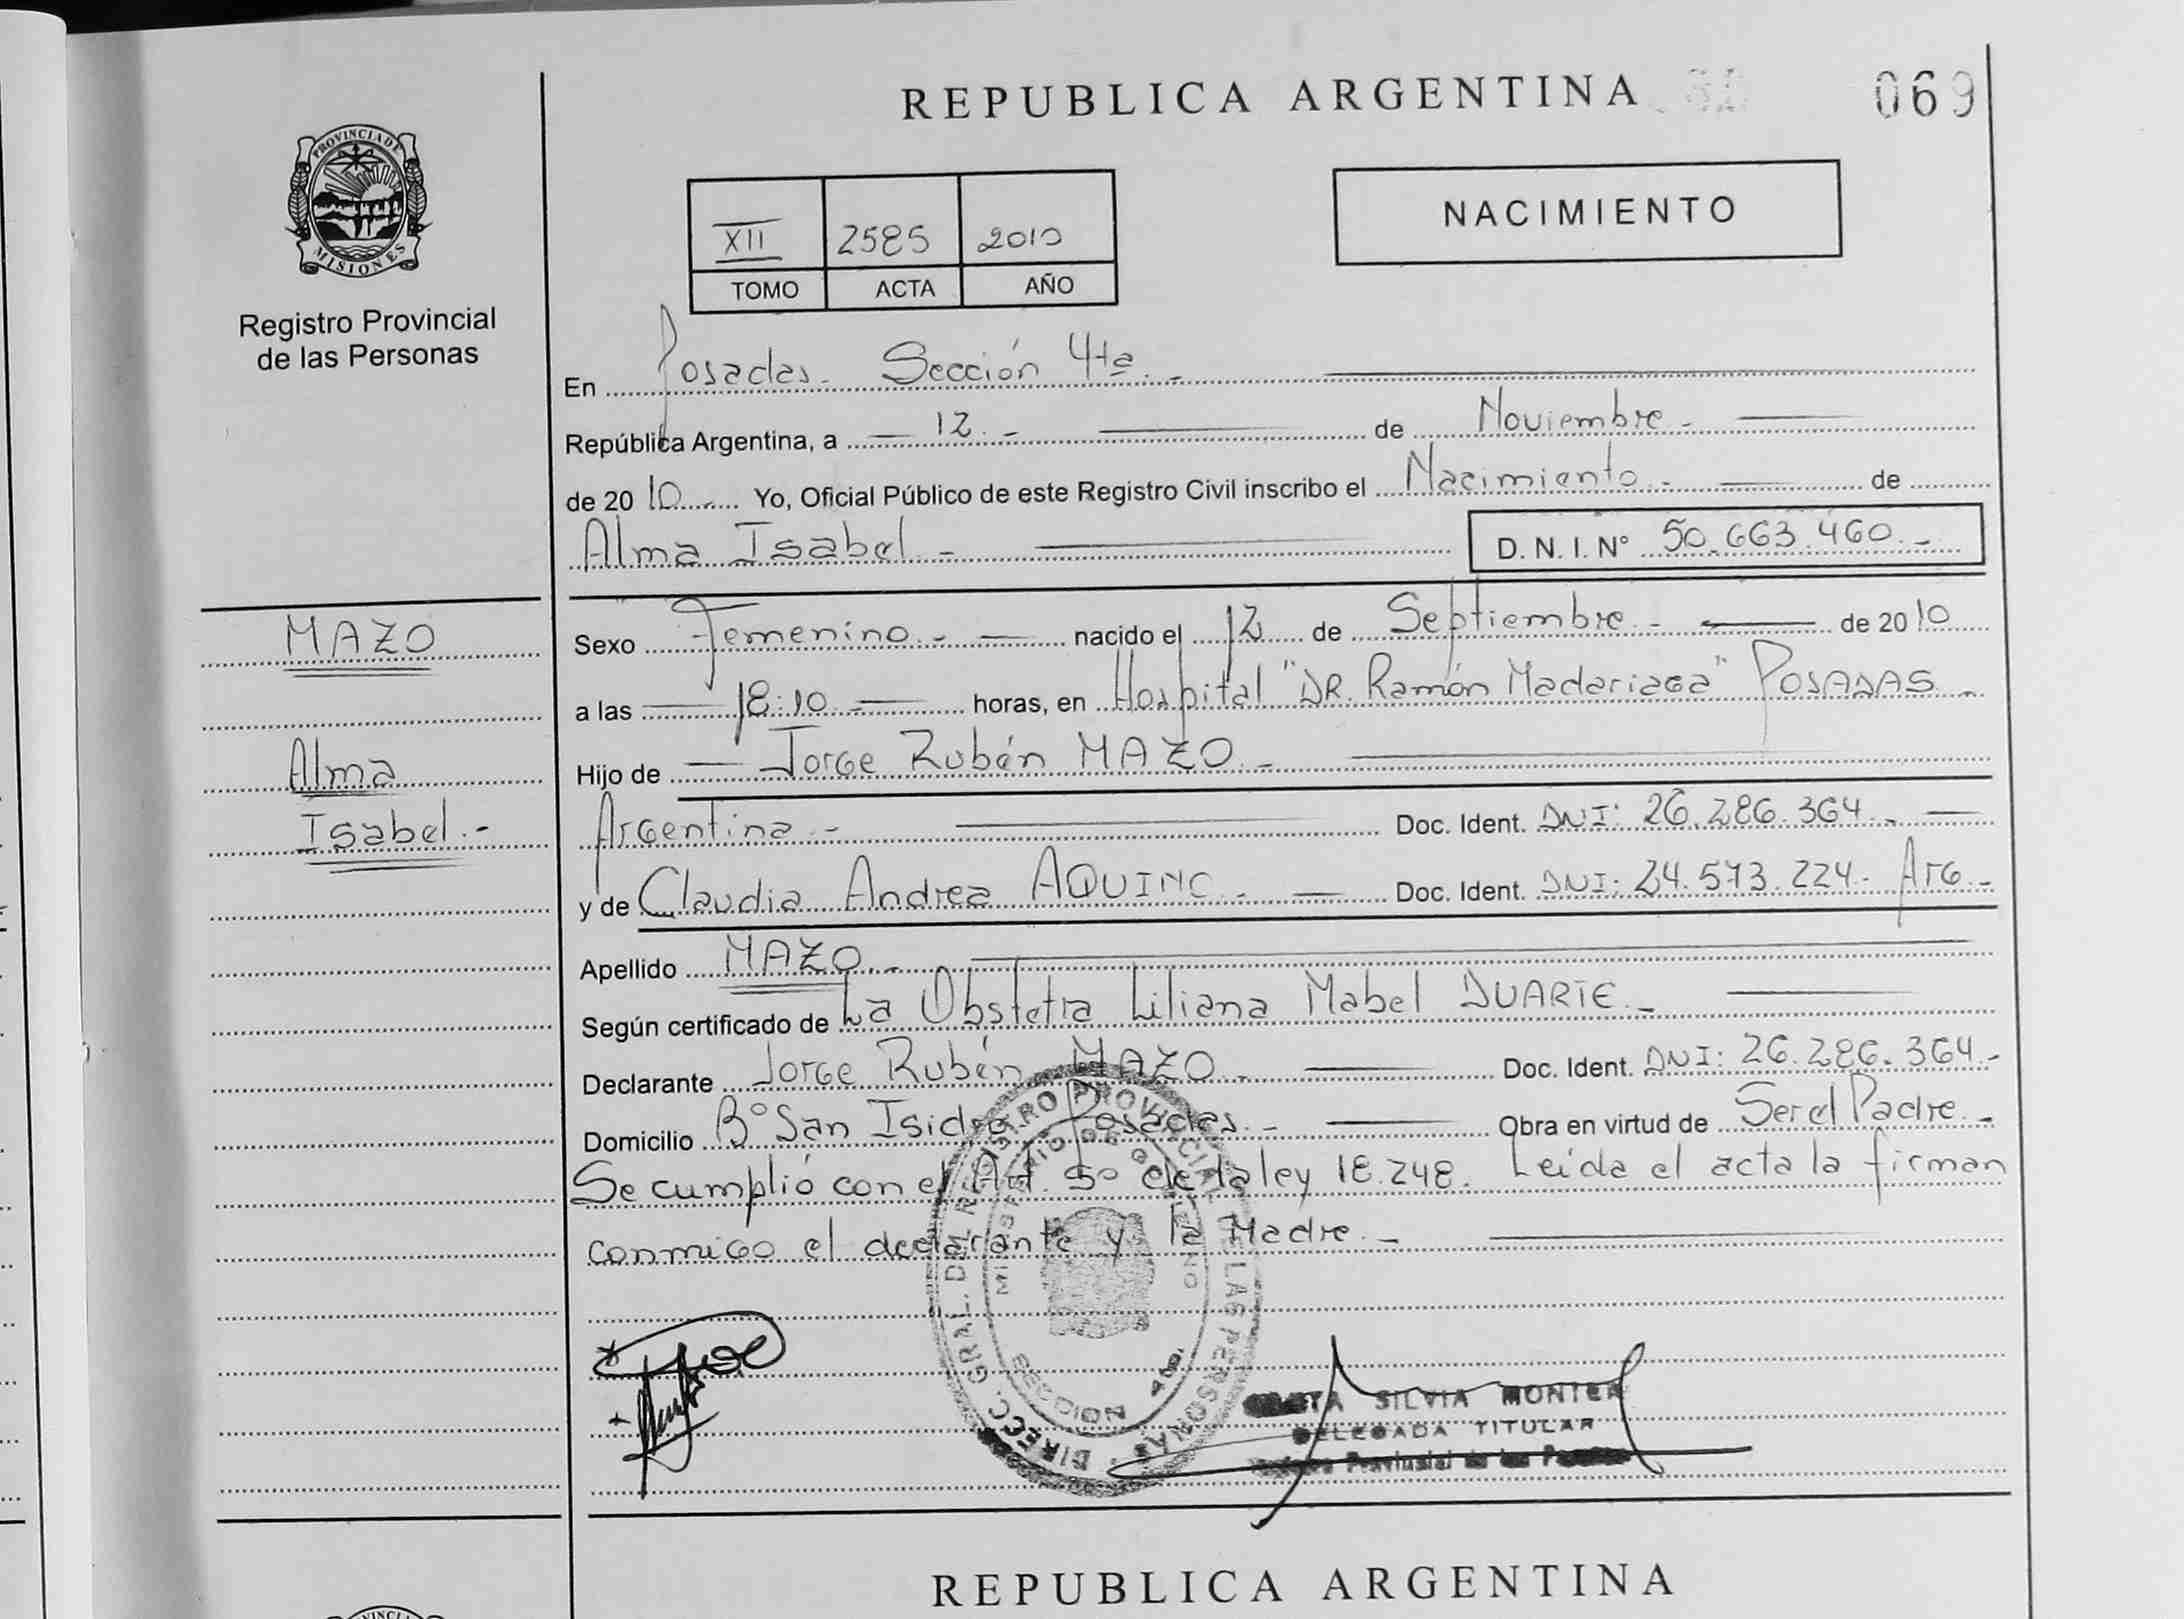 REPUBLICA ARGENTINA
069
PROVINCIA DE
MISIONES
Registro Provincial
de las Personas
XII 2585 2010
TOMO ACTA AÑO
NACIMIENTO
En Posadas. Sección 4ta.-
República Argentina, a 12.- de Noviembre.-
de 2010 Yo, Oficial Público de este Registro Civil inscribo el Nacimiento.- de
Alma Isabel.- D. N. I. N° 50.663.460.-
MAZO
Alma
Isabel.-
Sexo Femenino.- nacido el 12 de Septiembre.- de 2010
a las 18:10 horas, en Hospital "DR. Ramón Madariaga" POSADAS.-
Hijo de Jorge Rubén MAZO.-
Argentina.- Doc. Ident. DNI: 26.286.364.-
y de Claudia Andrea AQUINO.- Doc. Ident. DNI: 24.573.224.- Arg.-
Apellido MAZO.-
Según certificado de La Obstetra Liliana Mabel DUARTE.-
Declarante Jorge Rubén MAZO.- Doc. Ident. DNI: 26.286.364.-
Domicilio B° San Isidro Posadas.- Obra en virtud de Ser el Padre.-
Se cumplió con el Art. 5° de la ley 18.248. Leída el acta la firman
conmigo el declarante y la Madre.-
DIRECC. GRAL. DEL REGISTRO PROVINCIAL DE LAS PERSONAS
MINISTERIO DE GOBIERNO
SECCION
SILVIA MONIER
DELEGADA TITULAR
Provincial de las
REPUBLICA ARGENTINA